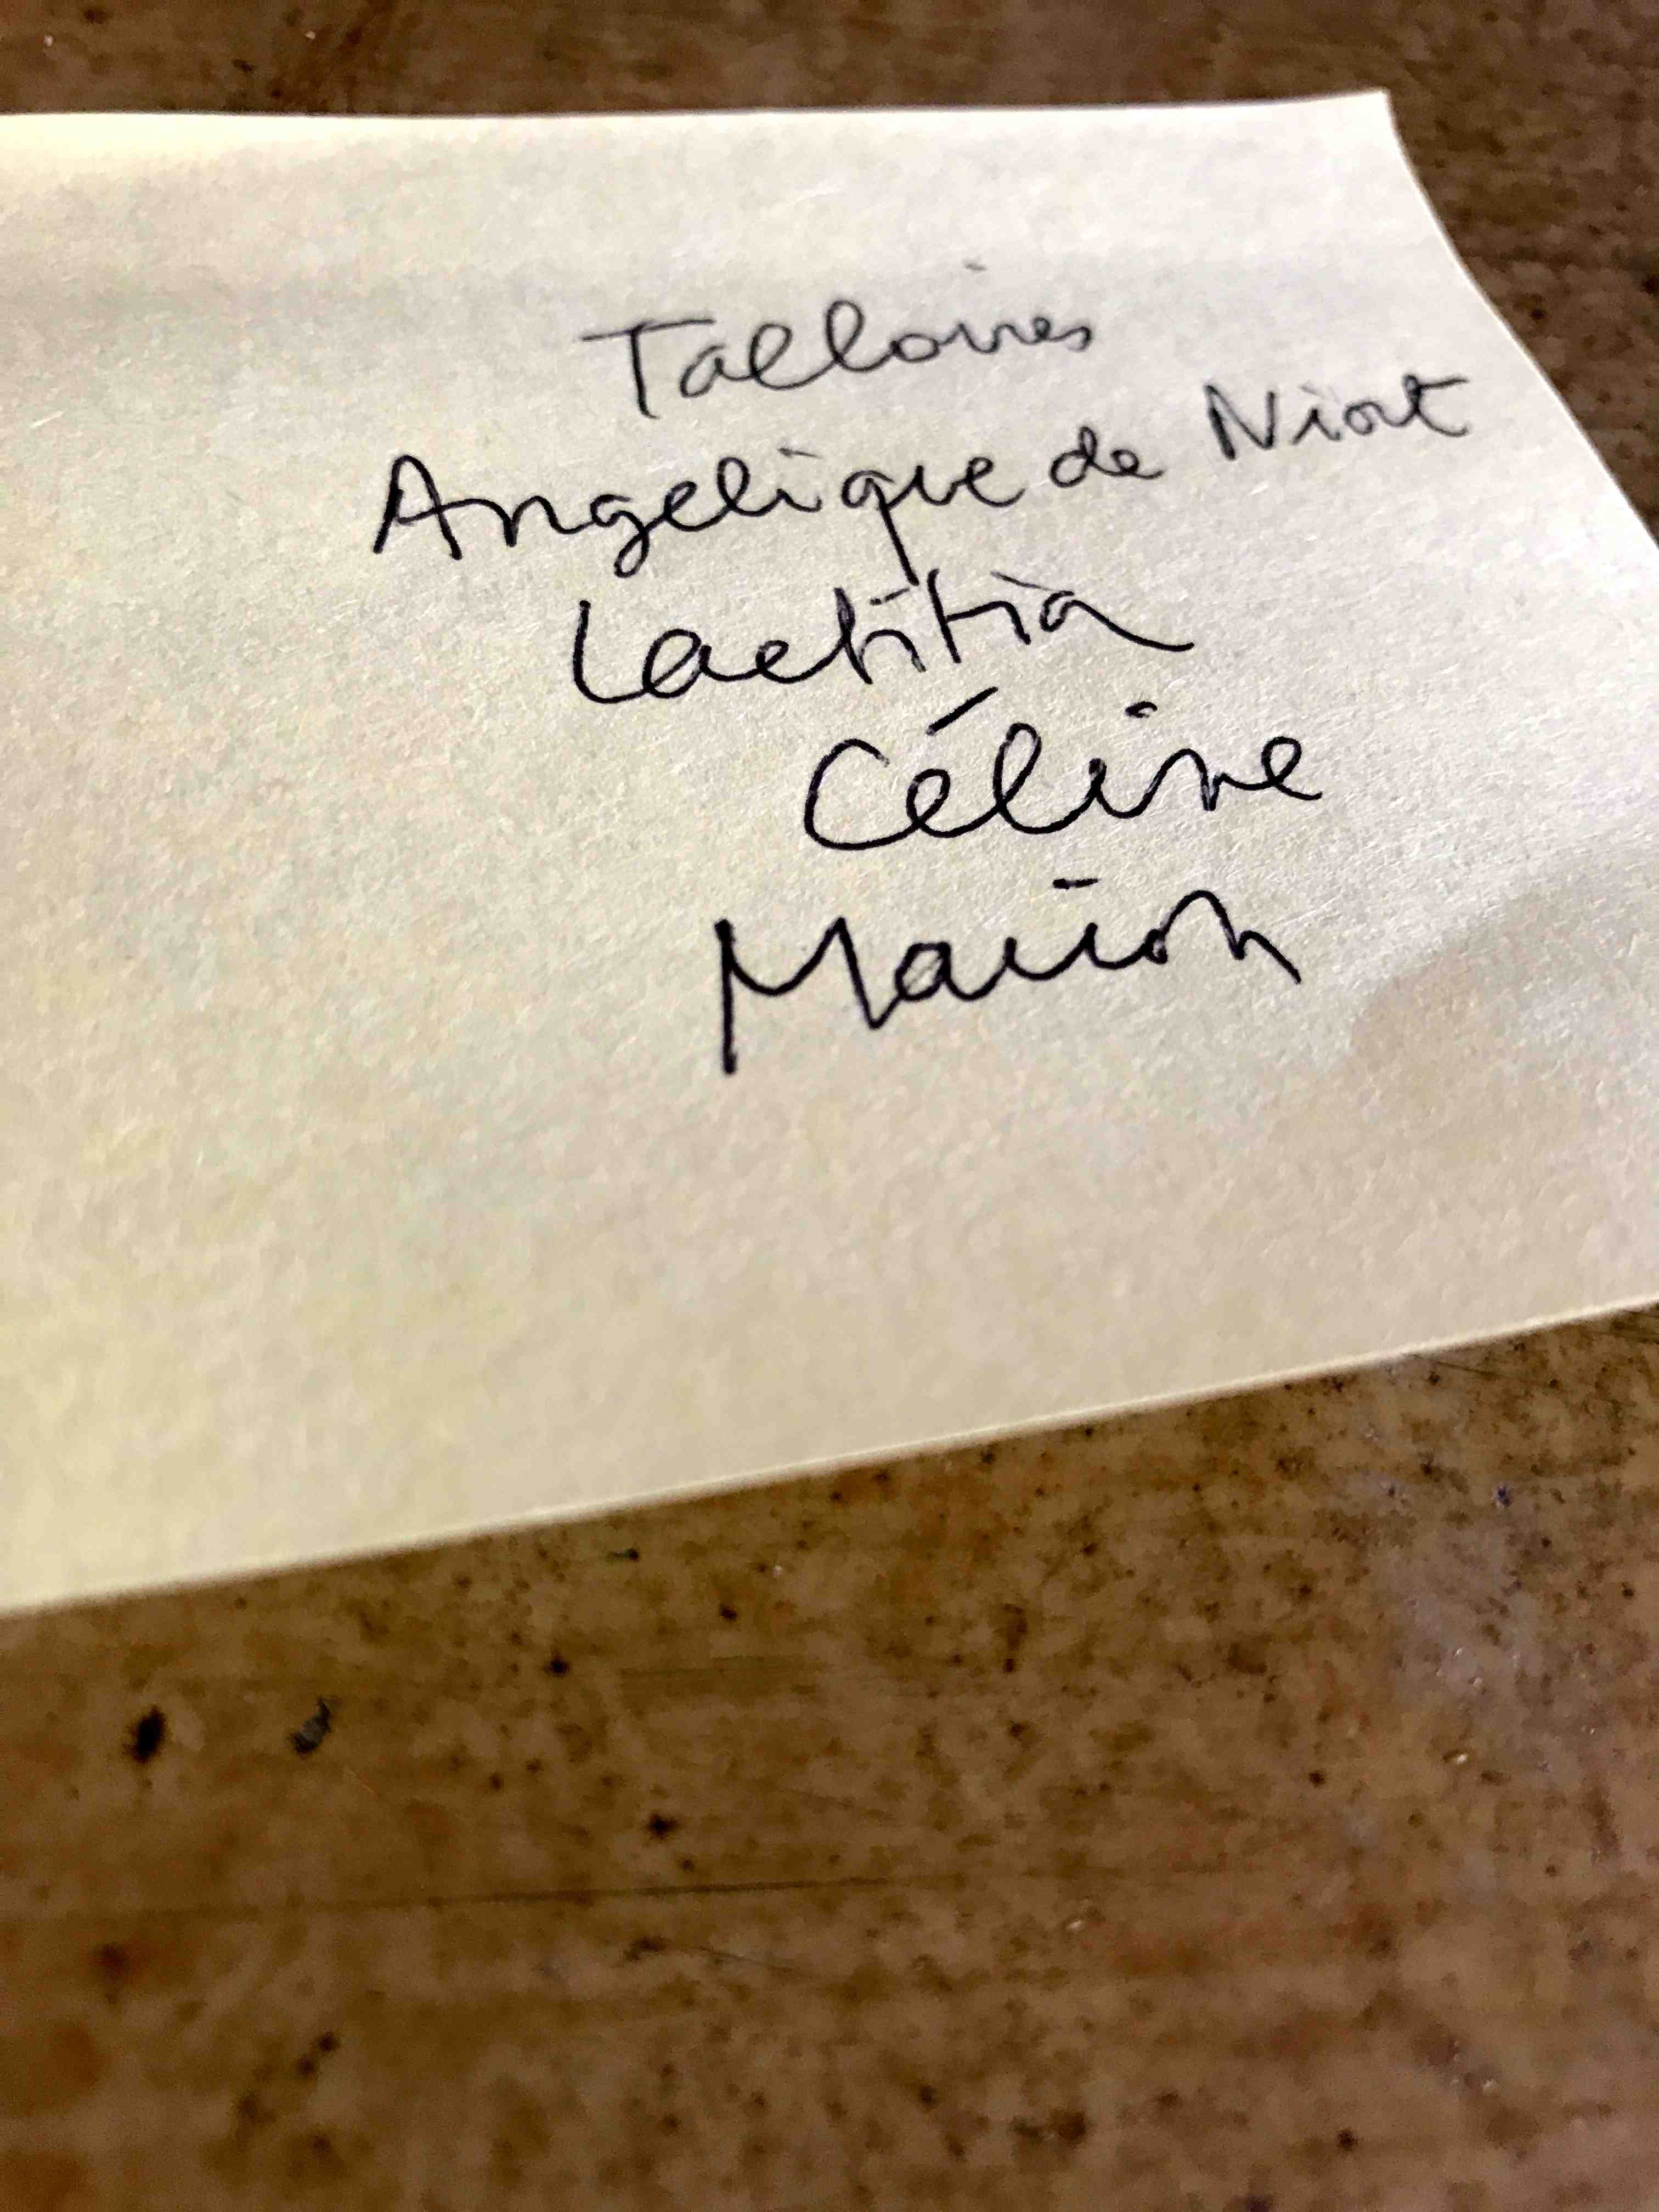 Talloires
Angelique de Niort
Laetitia
Céline
Marion